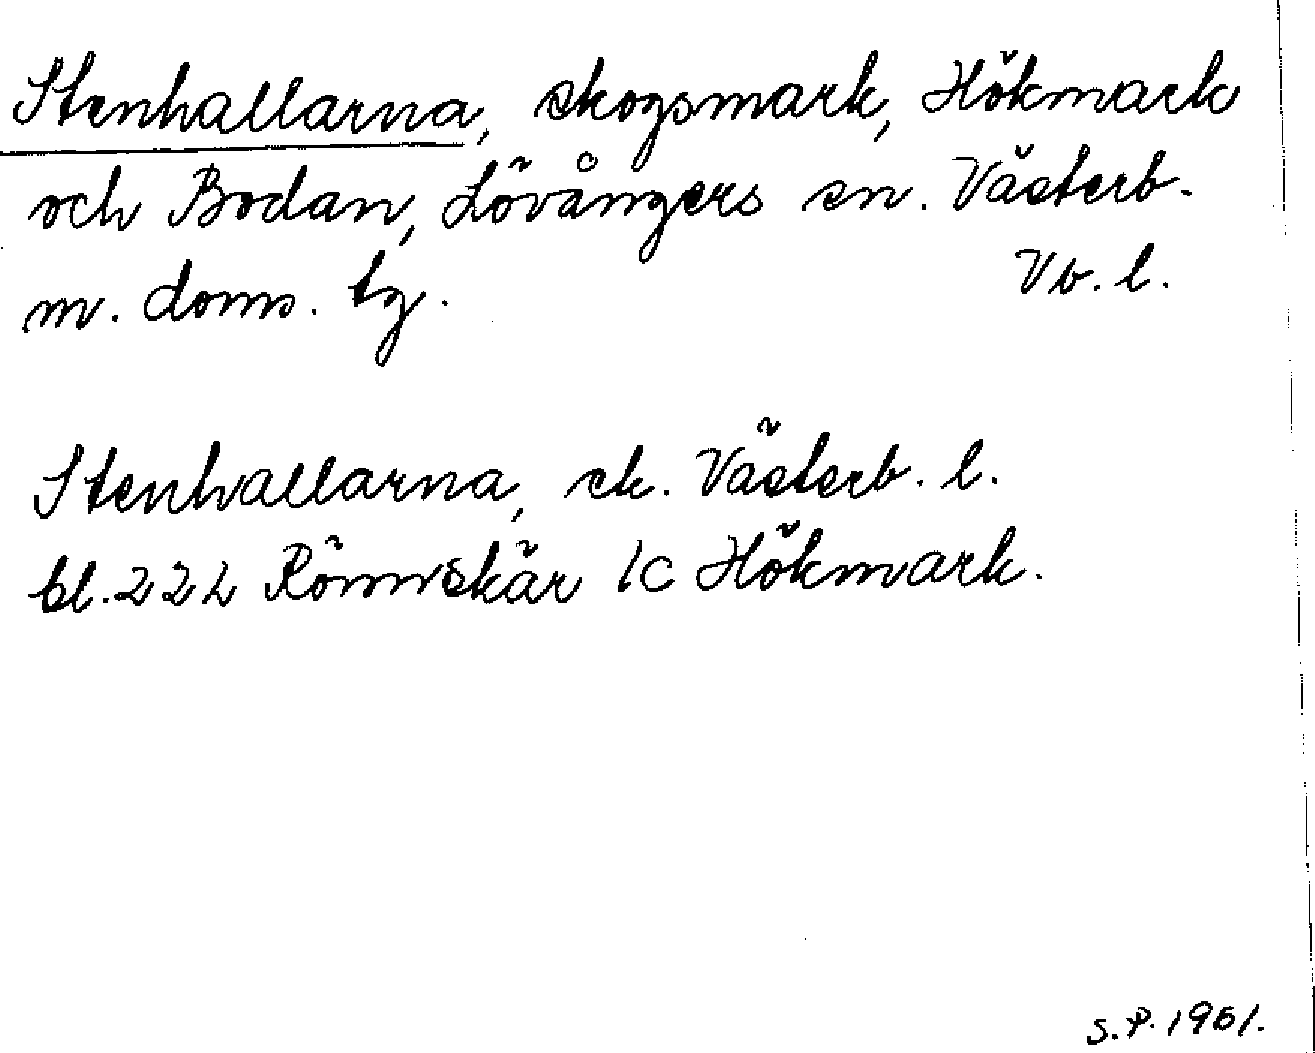 Stenhallarna, skogsmark, Hökmark
och Bodan, Lövångers sn. Västerb.
m. doms. tg. Vb. l.
Stenhallarna, sk. Västerb. l.
bl. 222 Rönnskär 1c Hökmark.
S.P. 1961.